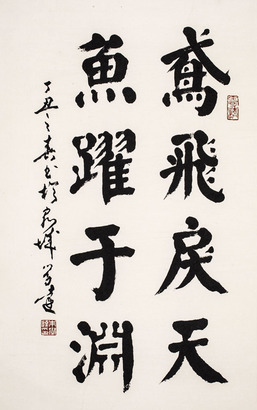 鳶飛戾天
魚躍于淵
丁丑之春書於